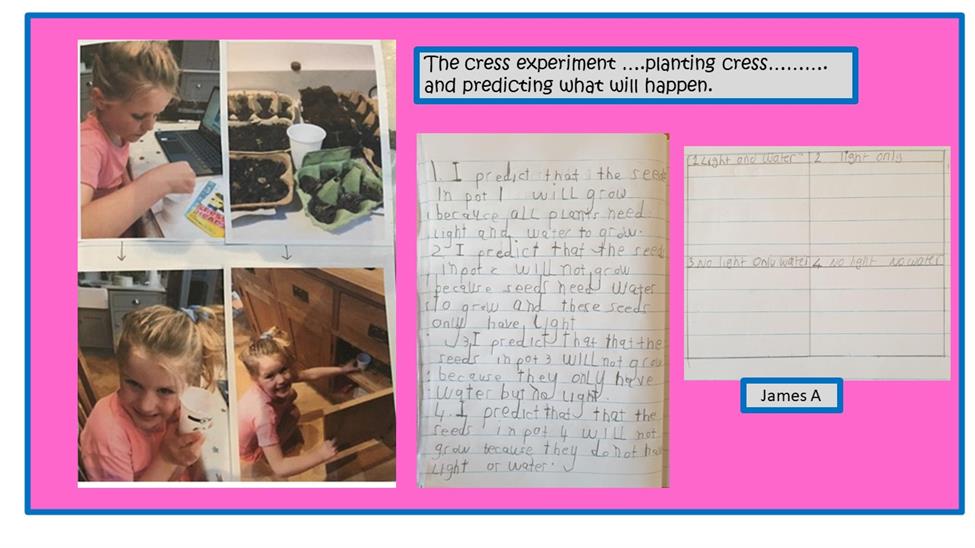 The cress experiment ....planting cress..........
and predicting what will happen.
1. I predict that the seeds
in pot 1 will grow
because all plants need
light and water to grow.
2 I predict that the seeds
in pot 2 will not grow
because seeds need water
to grow and these seeds
only have light
3 I predict that that the
seeds in pot 3 will not grow
because they only have
water but no light.
4. I predict that that the
seeds in pot 4 will not
grow because they do not have
light or water.
1 Light and water 2 light only
3 No light Only water 4 No light No water
James A
CRESS